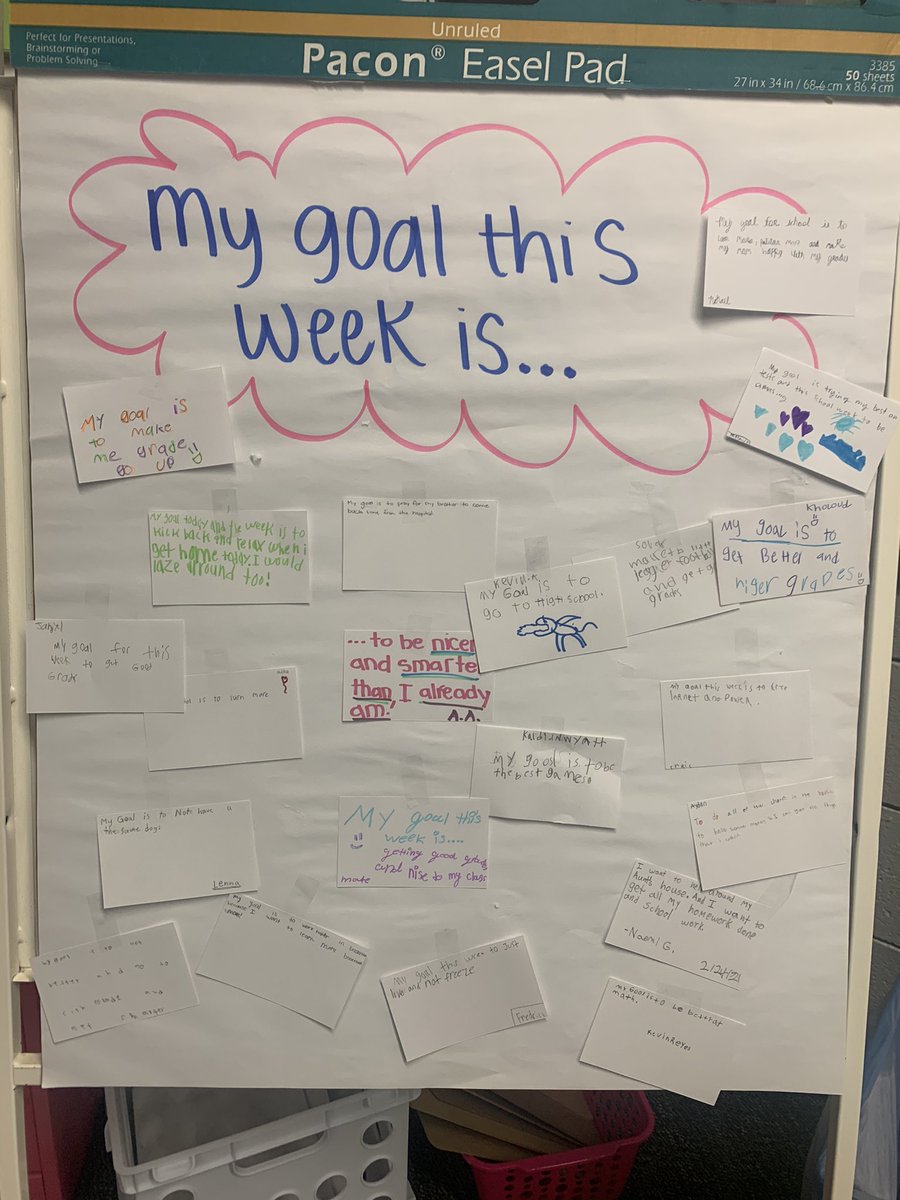 Perfect for Presentations,
Brainstorming or
Problem Solving
Unruled
Pacon® Easel Pad
3385
50 sheets
27 in x 34 in / 68.6 cm x 86.4 cm
My goal this
week is...
My goal for school is to
more, more and make
my mom happy with my grades
My goal is
to make
me grade
go up
My goal is trying my best on
tests and this school week to be
amazing
My goal today and the week is to
kick back and relax when i
get home today. I would
laze around too!
My goal is to pray for my brother to come
back home from the hospital
Kevin.R
My Goal is to
go to High school.
football
and get g
grades
Kholoud
My goal is to
get Better and
higer grades
My goal for this
week to get Good
Grade
is to lurn more
...to be nicer
and smarter
than, I already
am. A.A.
My goal this week is to
and Power.
Kaidlin Wyatt
My goosl is to be
the best games!
My Goal is to Note have u
the same dogs
Lenna
My goal this
week is....
getting good grads
and nise to my class
mate
To do all of
I want to be around my
Aunts house. And I want to
get all my homework done
and School work
-Naomi G.
2/24/21
My goal is to
more!
My goal this week to Just
live and not freeze
Fredric
My Goal is to be better at
math.
Kevin Reyes